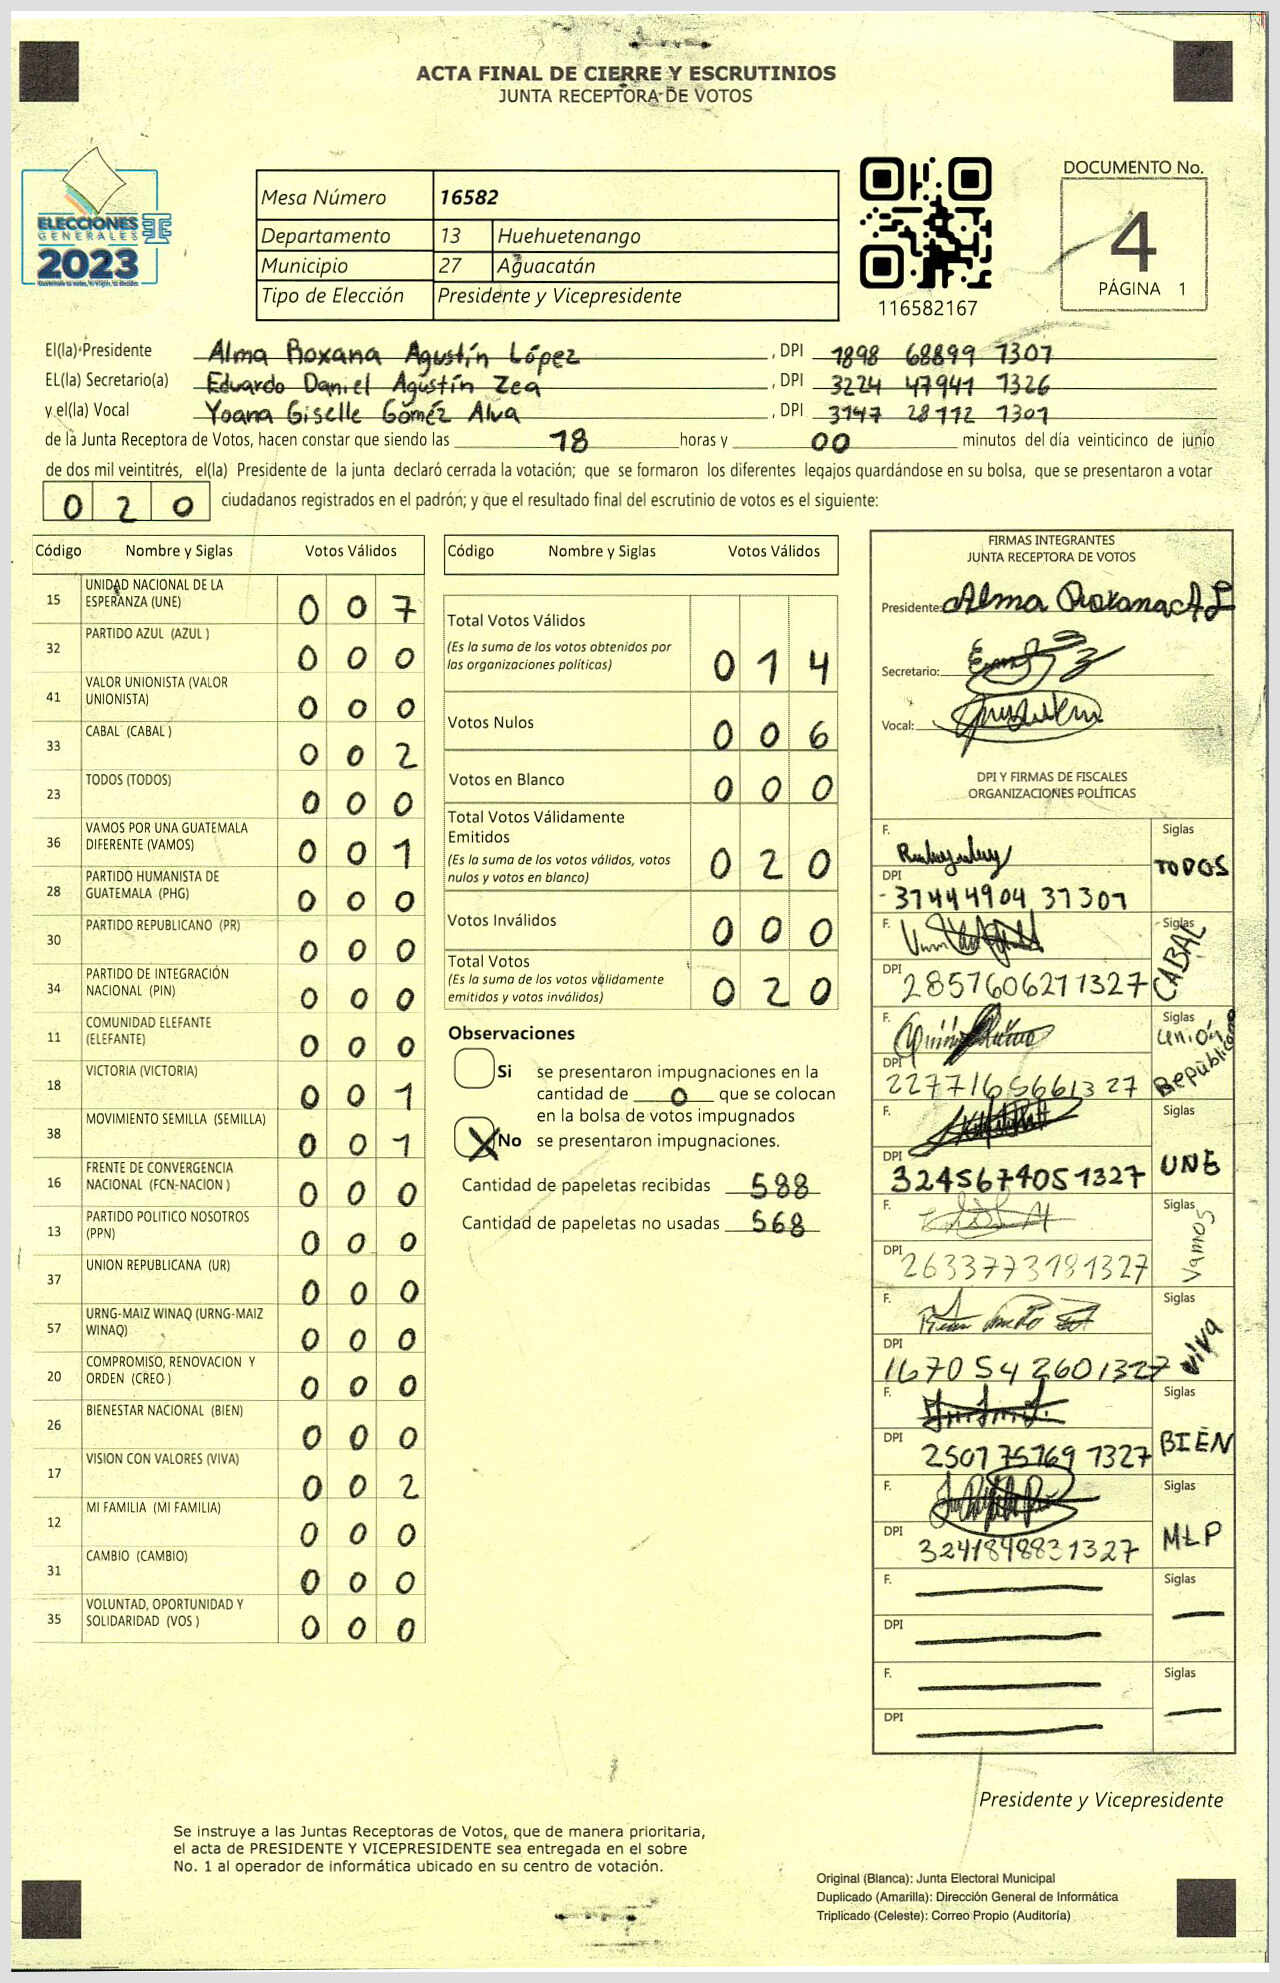 ACTA FINAL DE CIERRE Y ESCRUTINIOS
JUNTA RECEPTORA DE VOTOS
ELECCIONES
GENERALES
2023
Mesa Número 16582
Departamento 13 Huehuetenango
Municipio 27 Aguacatán
Tipo de Elección Presidente y Vicepresidente
116582167
DOCUMENTO No.
4
PÁGINA 1
El(la) Presidente Alma Roxana Agustín López , DPI 1898 68899 1307
EL(la) Secretario(a) Eduardo Daniel Agustín Zea , DPI 3224 47941 1326
y el(la) Vocal Yoana Giselle Goméz Alva , DPI 3147 28112 1301
de la Junta Receptora de Votos, hacen constar que siendo las 18 horas y 00 minutos del día veinticinco de junio
de dos mil veintitrés, el(la) Presidente de la junta declaró cerrada la votación; que se formaron los diferentes legajos quardándose en su bolsa, que se presentaron a votar
0 2 0 ciudadanos registrados en el padrón; y que el resultado final del escrutinio de votos es el siguiente:
Código Nombre y Siglas Votos Válidos
15 UNIDAD NACIONAL DE LA ESPERANZA (UNE) 0 0 7
32 PARTIDO AZUL (AZUL ) 0 0 0
41 VALOR UNIONISTA (VALOR UNIONISTA) 0 0 0
33 CABAL (CABAL ) 0 0 2
23 TODOS (TODOS) 0 0 0
36 VAMOS POR UNA GUATEMALA DIFERENTE (VAMOS) 0 0 1
28 PARTIDO HUMANISTA DE GUATEMALA (PHG) 0 0 0
30 PARTIDO REPUBLICANO (PR) 0 0 0
34 PARTIDO DE INTEGRACIÓN NACIONAL (PIN) 0 0 0
11 COMUNIDAD ELEFANTE (ELEFANTE) 0 0 0
18 VICTORIA (VICTORIA) 0 0 1
38 MOVIMIENTO SEMILLA (SEMILLA) 0 0 1
16 FRENTE DE CONVERGENCIA NACIONAL (FCN-NACION ) 0 0 0
13 PARTIDO POLITICO NOSOTROS (PPN) 0 0 0
37 UNION REPUBLICANA (UR) 0 0 0
57 URNG-MAIZ WINAQ (URNG-MAIZ WINAQ) 0 0 0
20 COMPROMISO, RENOVACION Y ORDEN (CREO ) 0 0 0
26 BIENESTAR NACIONAL (BIEN) 0 0 0
17 VISION CON VALORES (VIVA) 0 0 2
12 MI FAMILIA (MI FAMILIA) 0 0 0
31 CAMBIO (CAMBIO) 0 0 0
35 VOLUNTAD, OPORTUNIDAD Y SOLIDARIDAD (VOS ) 0 0 0
Código Nombre y Siglas Votos Válidos
Total Votos Válidos
(Es la suma de los votos obtenidos por
las organizaciones políticas) 0 1 4
Votos Nulos 0 0 6
Votos en Blanco 0 0 0
Total Votos Válidamente
Emitidos
(Es la suma de los votos válidos, votos
nulos y votos en blanco) 0 2 0
Votos Inválidos 0 0 0
Total Votos
(Es la suma de los votos válidamente
emitidos y votos inválidos) 0 2 0
Observaciones
Si se presentaron impugnaciones en la
cantidad de 0 que se colocan
en la bolsa de votos impugnados
X No se presentaron impugnaciones.
Cantidad de papeletas recibidas 588
Cantidad de papeletas no usadas 568
FIRMAS INTEGRANTES
JUNTA RECEPTORA DE VOTOS
Presidente: Alma Roxana A L
Secretario:
Vocal:
DPI Y FIRMAS DE FISCALES
ORGANIZACIONES POLÍTICAS
F. Siglas TODOS
DPI 3744490437301
F. Siglas CABAL
DPI 2857606211327
F. Siglas Unión Republicano
DPI 2277165661327
F. Siglas UNE
DPI 3245674051327
F. Siglas Vamos
DPI 2633773181327
F. Siglas VIVA
DPI 1670542601327
F. Siglas BIEN
DPI 2501757691327
F. Siglas MLP
DPI 3241848831327
F. Siglas
DPI
F. Siglas
DPI
Presidente y Vicepresidente
Se instruye a las Juntas Receptoras de Votos, que de manera prioritaria,
el acta de PRESIDENTE Y VICEPRESIDENTE sea entregada en el sobre
No. 1 al operador de informática ubicado en su centro de votación.
Original (Blanca): Junta Electoral Municipal
Duplicado (Amarilla): Dirección General de Informática
Triplicado (Celeste): Correo Propio (Auditoría)